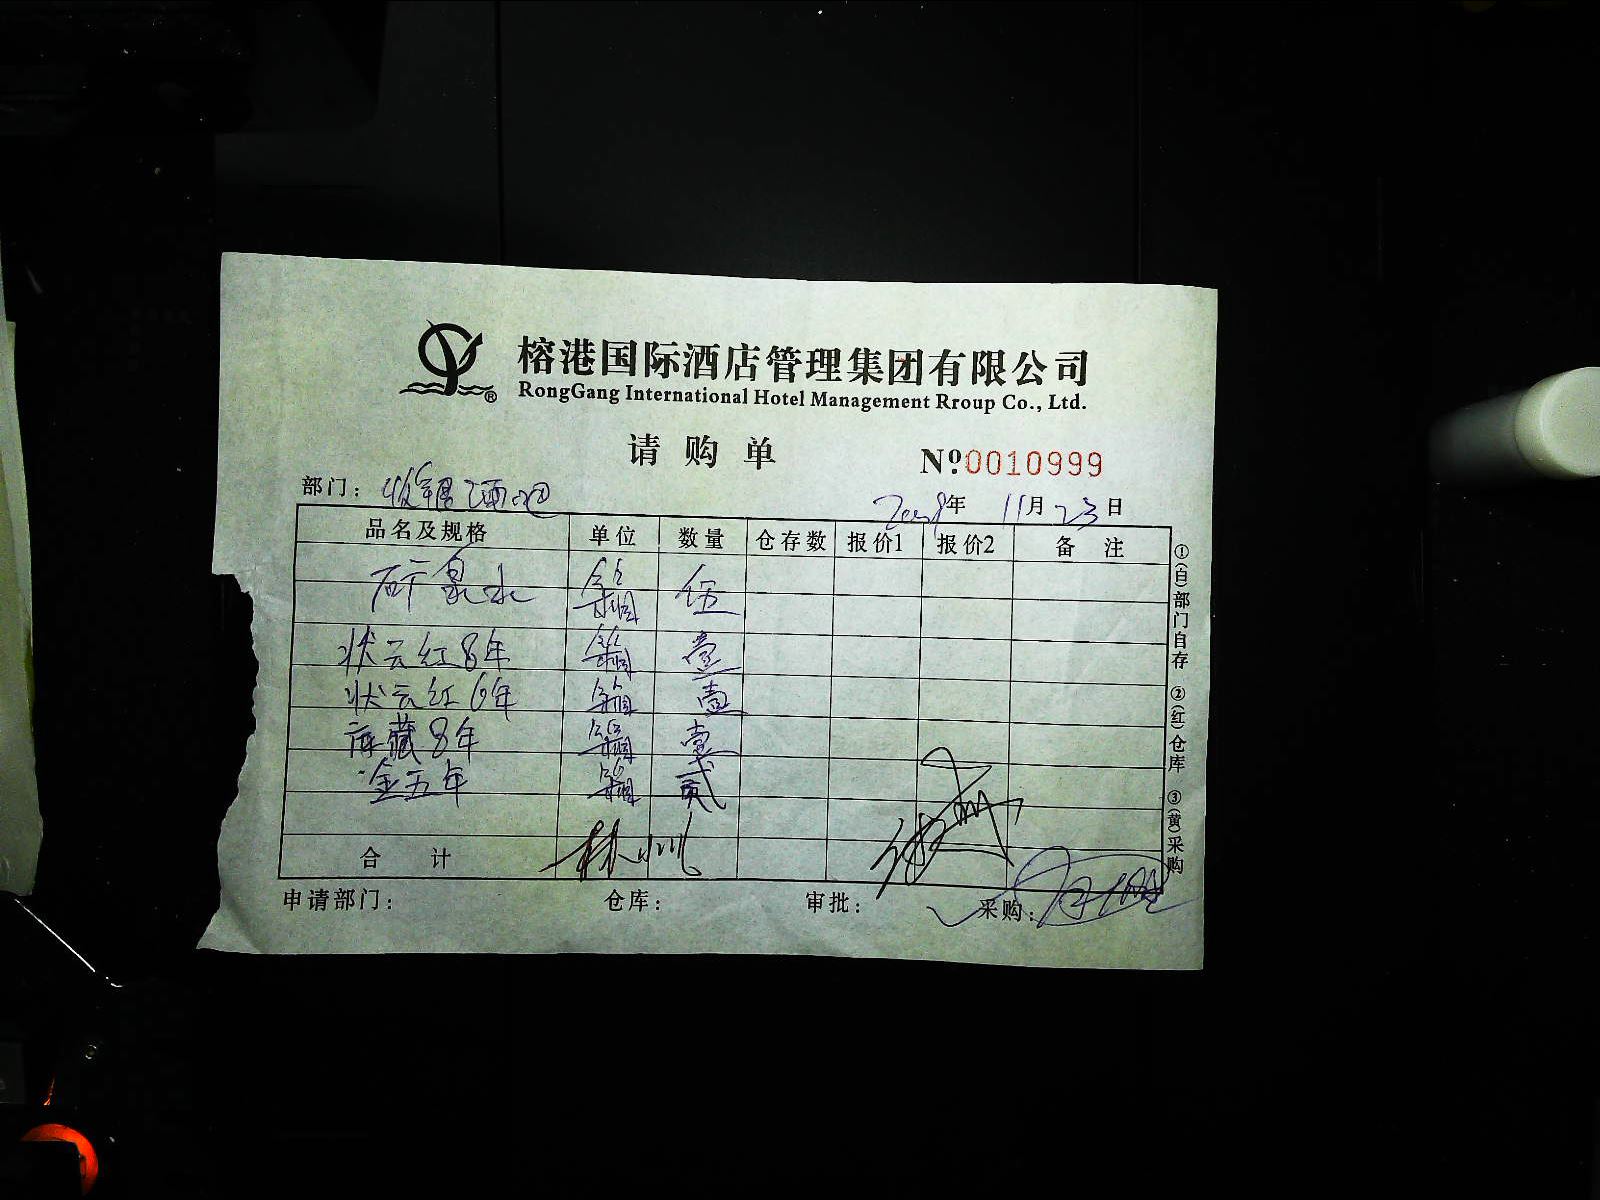 榕港国际酒店管理集团有限公司
RongGang International Hotel Management Rroup Co., Ltd.
请购单
№ 0010999
部门: 酒吧 2018年 11月 23日
品名及规格 单位 数量 仓存数 报价1 报价2 备注
矿泉水 箱 伍
状云红8年 箱 壹
状云红6年 箱 壹
库藏8年 箱 壹
金五年 箱 贰
合计
申请部门: 仓库: 审批: 采购:
①(白)部门自存 ②(红)仓库 ③(黄)采购